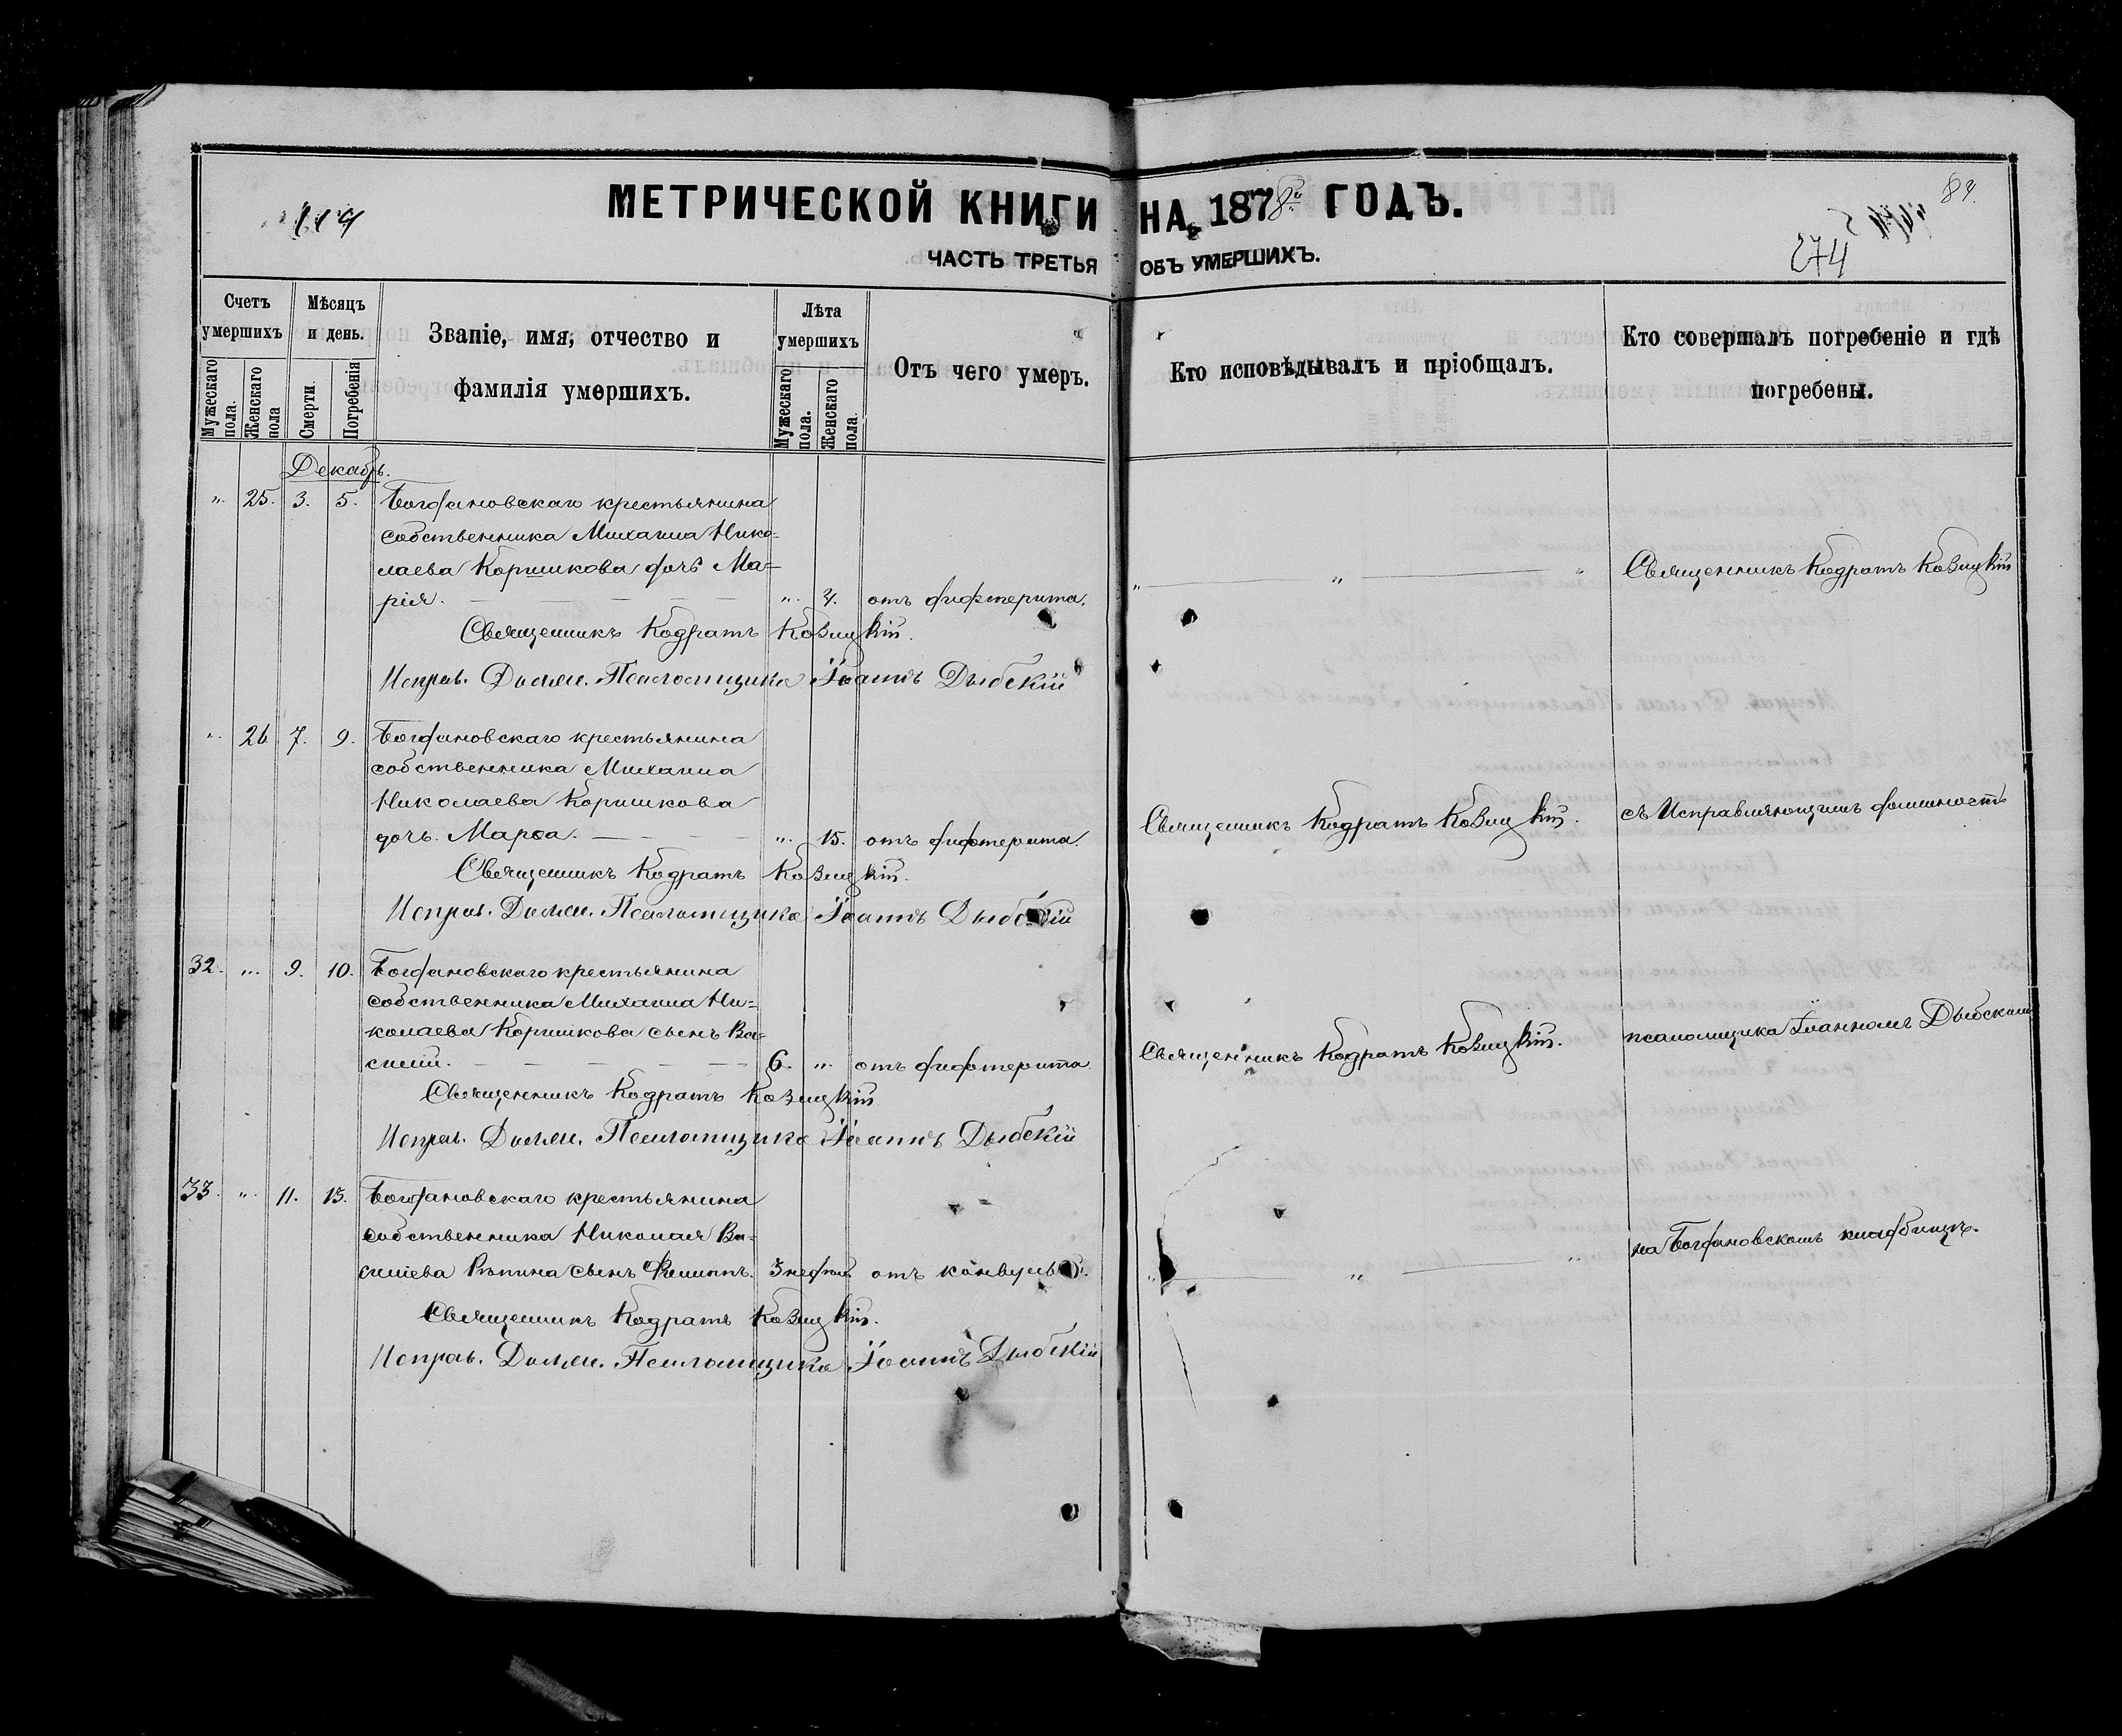 МЕТРИЧЕСКОЙ КНИГИ НА 1878й ГОДЪ.
ЧАСТЬ ТРЕТЬЯ ОБЪ УМЕРШИХЪ.
274
Счетъ умершихъ
Мѣсяцъ и день.
Званіе, имя, отчество и фамилія умершихъ.
Лѣта умершихъ
Отъ чего умеръ.
Кто исповѣдывалъ и пріобщалъ.
Кто совершалъ погребеніе и гдѣ погребены.
Мужескаго пола.
Женскаго пола
Смерти.
Погребенія
Мужескаго пола.
Женскаго пола.
Декабрь.
„ 25. 3. 5. Богдановскаго крестьянина
собственника Михаила Нико=
лаева Коршикова дочь Ма=
рія. „ 4. отъ дифтерита.
Священникъ Кодратъ Козицкій.
Исправ. Должн. Псаломщика Іоаннъ Дыбскій
„ 26 7. 9. Богдановскаго крестьянина
собственника Михаила
Николаева Коршикова
дочь Марѳа. „ 15. отъ дифтерита.
Священникъ Кодратъ Козицкій.
Исправ. Должн. Псаломщика Іоаннъ Дыбскій
32. „ 9. 10. Богдановскаго крестьянина
собственника Михаила Ни=
колаева Коршикова сынъ Ва=
силій. 6. „ отъ дифтерита.
Священникъ Кодратъ Козицкій
Исправ. Должн. Псаломщика Іоаннъ Дыбскій
33. „ 11. 13. Богдановскаго крестьянина
собственника Николая Ва=
силіева Рѣпина сынъ Филиппъ. 3 недѣль отъ конвульсій.
Священникъ Кодратъ Козицкій.
Исправ. Должн. Псаломщика Іоаннъ Дыбскій
„ „ „
Священникъ Кодратъ Козицкій.
Священникъ Кодратъ Козицкій.
„ „ „
Священникъ Кодратъ Козицкій
съ Исправляющимъ должность
псаломщика Іоанномъ Дыбскимъ
на Богдановскомъ кладбищѣ.